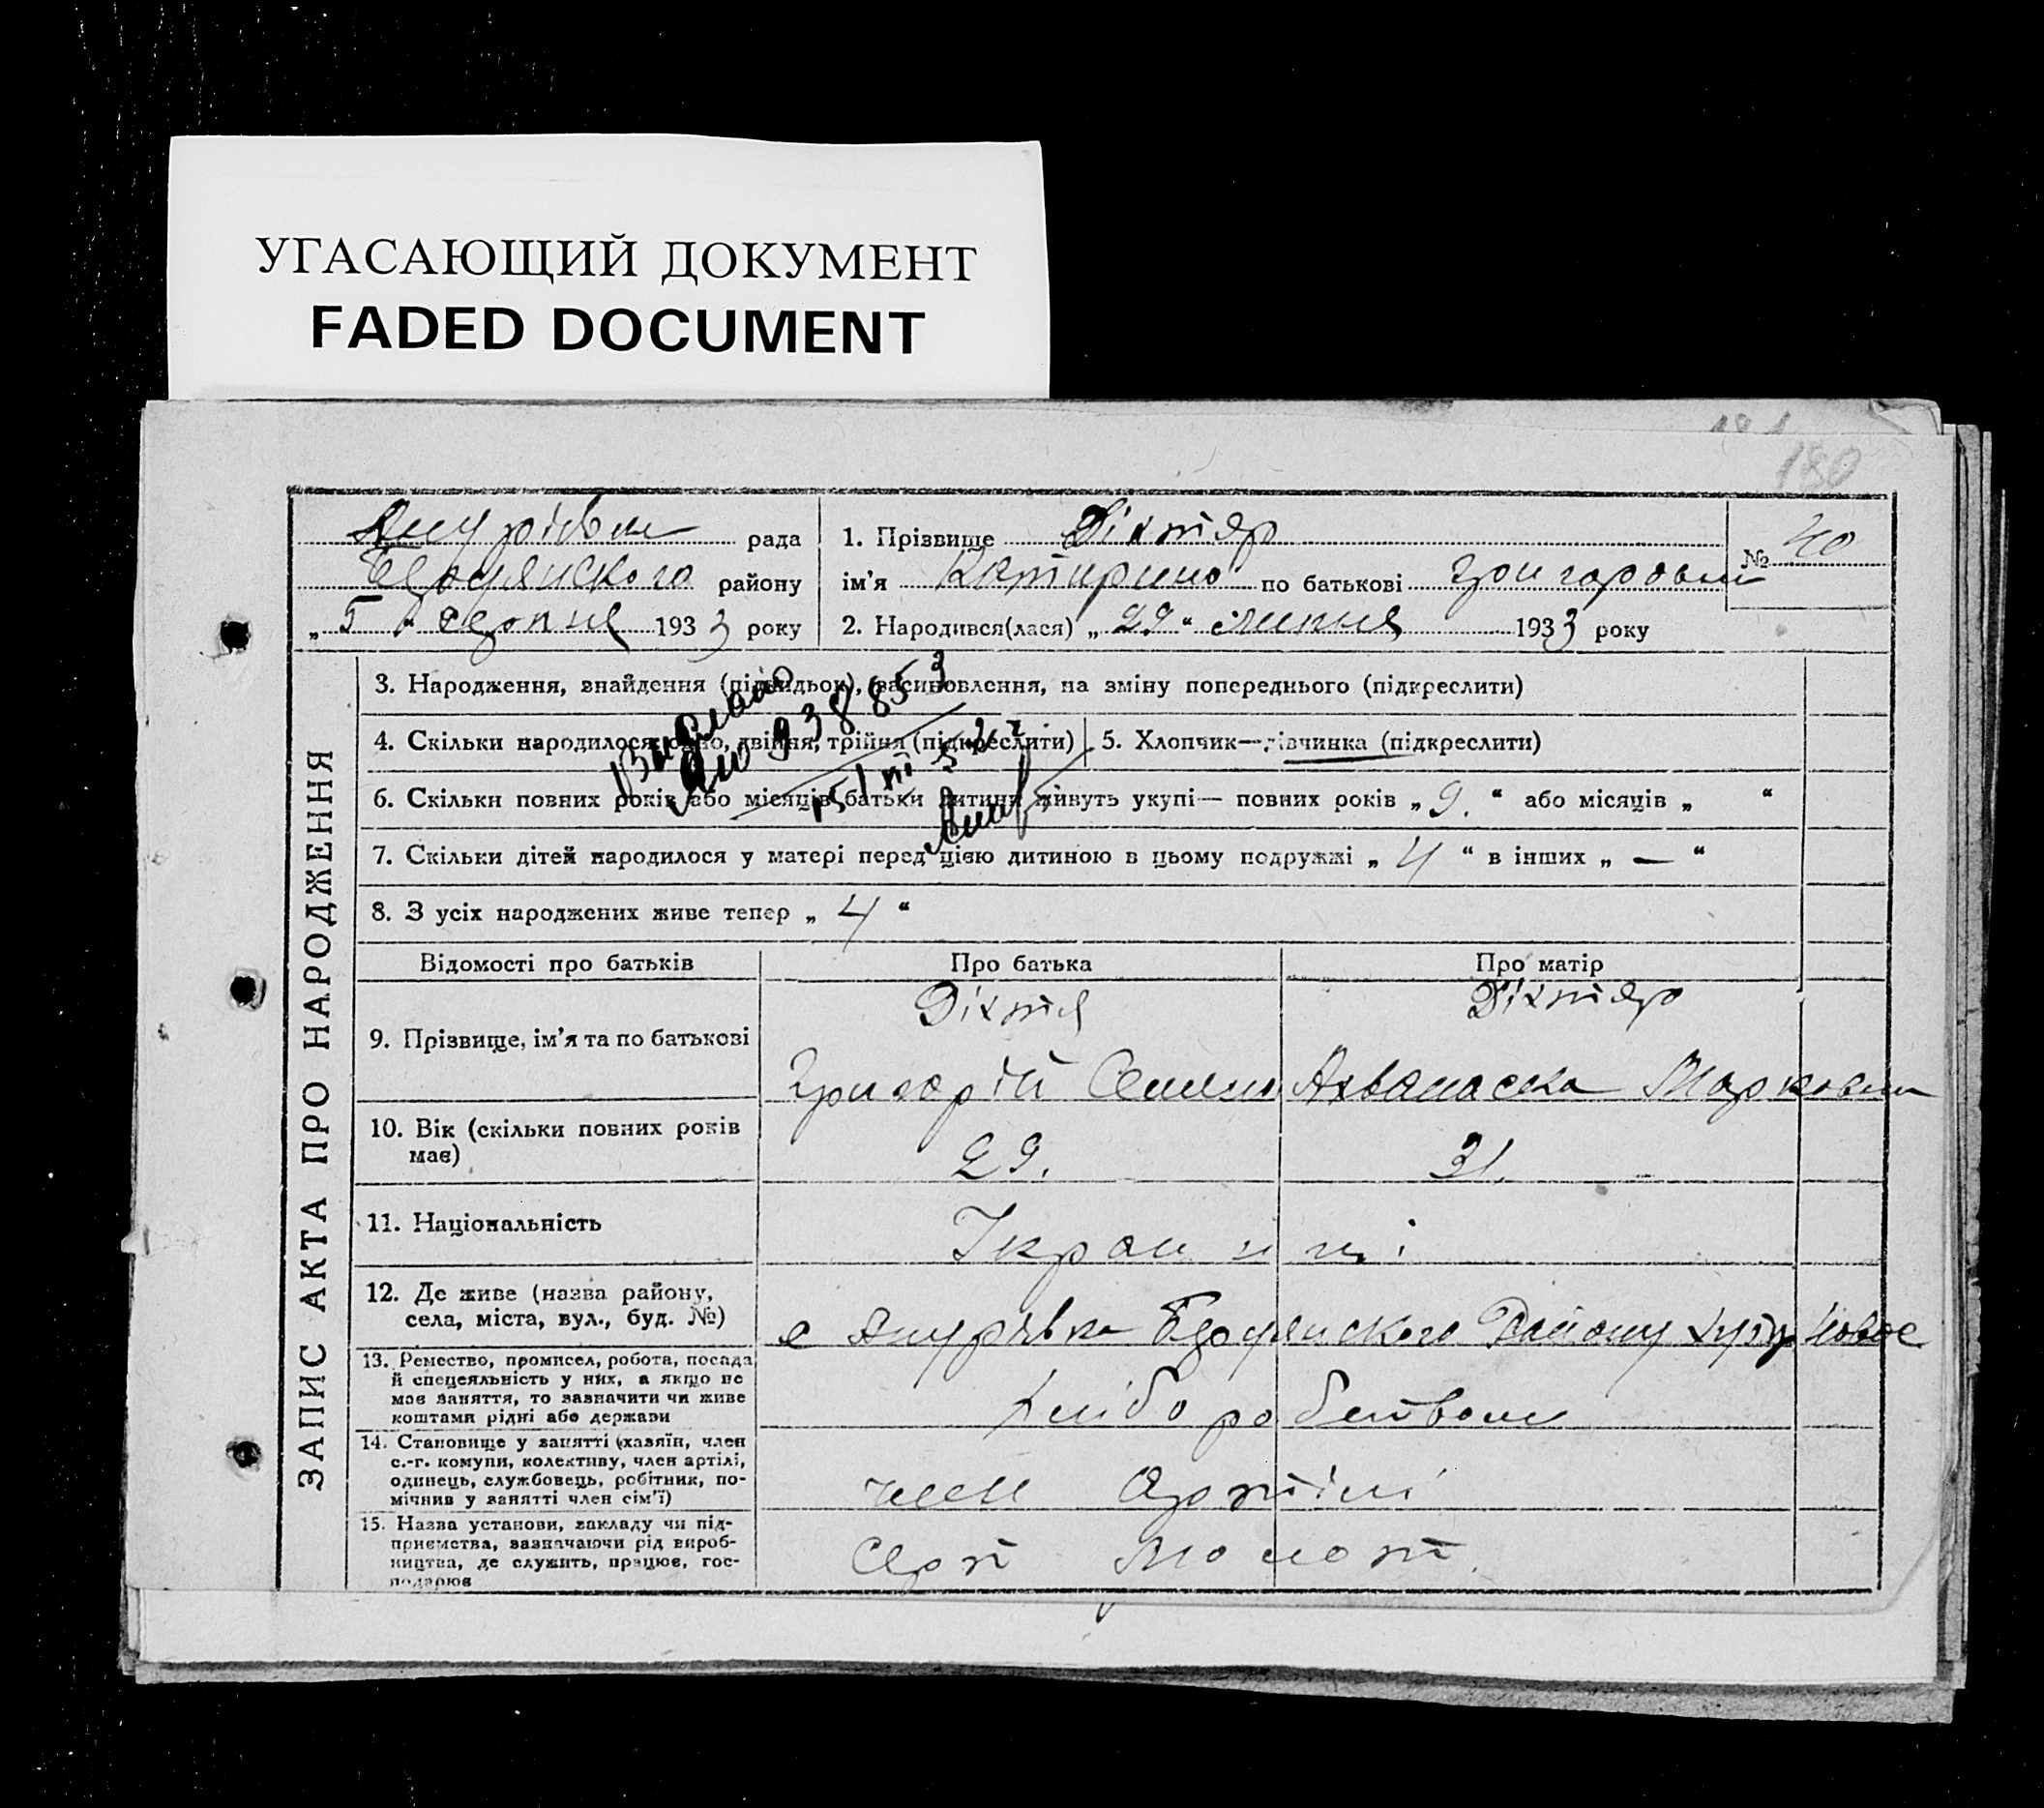 УГАСАЮЩИЙ ДОКУМЕНТ
FADED DOCUMENT
180
рада
району
„ 5 “ серпня 1933 року
1. Прізвище Діхтяр
ім’я Катирина по батькові Григоровна
2. Народився(лася) „ 29 “ липня 1933 року
№ 40
ЗАПИС АКТА ПРО НАРОДЖЕННЯ
3. Народження, знайдення (підкидьок), засиновлення, на зміну попереднього (підкреслити)
4. Скільки народилося: одно, двійня, трійня (підкреслити)
5. Хлопчик—дівчинка (підкреслити)
6. Скільки повних років або місяців батьки дитини живуть укупі— повних років „ 9. “ або місяців „ “
7. Скільки дітей народилося у матері перед цією дитиною в цьому подружжі „ 4 “ в інших „ — “
8. З усіх народжених живе тепер „ 4 “
Відомості про батьків
Про батька
Про матір
9. Прізвище, ім’я та по батькові
Діхтя
Григорій
Діхтяр
Марковна
10. Вік (скільки повних років
має)
29.
31.
11. Національність
Українці
12. Де живе (назва району,
села, міста, вул., буд. №)
с району
13. Ремество, промисел, робота, посада
й спецеяльність у них, а якщо не
має заняття, то зазначити чи живе
коштами рідні або держави
14. Становище у занятті (хазяїн, член
с.-г. комуни, колективу, член артілі,
одинець, службовець, робітник, по-
мічник у занятті член сім’ї)
член Артілі
15. Назва установи, закладу чи під-
приємства, зазначаючи рід вироб-
ництва, де служить, працює, гос-
подарює
Серп Молот.